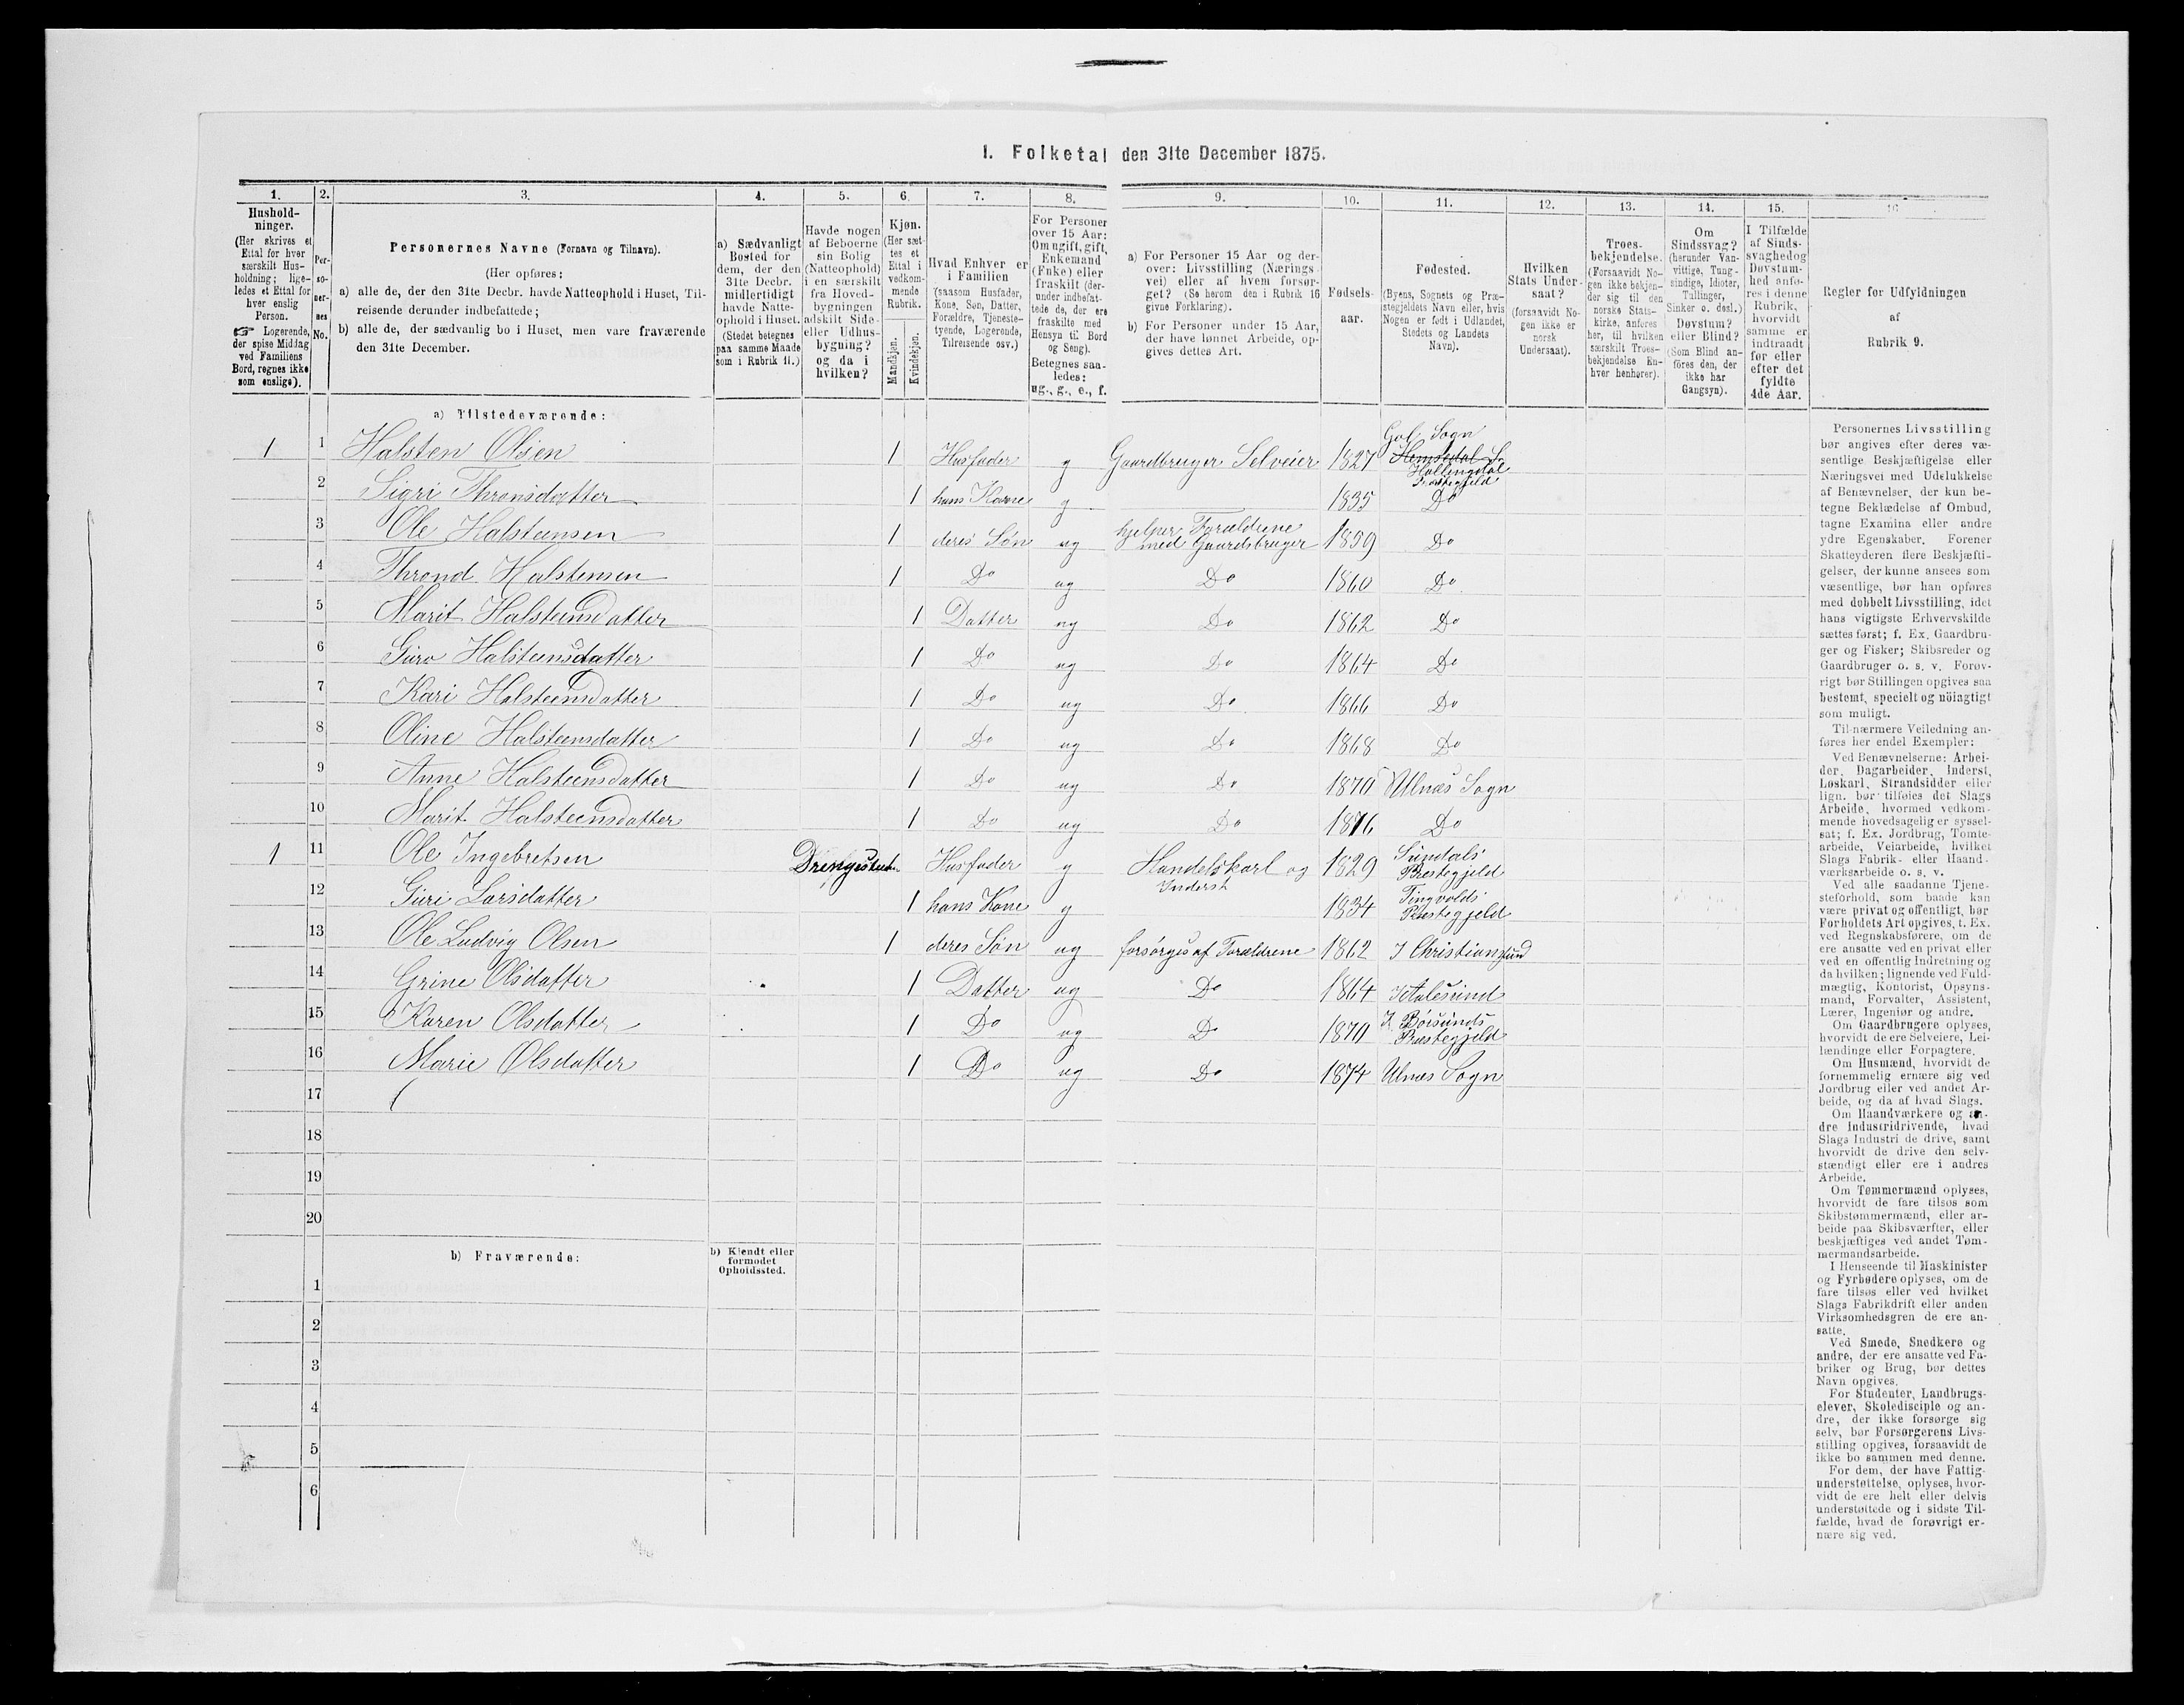 I. Folketal den 31te December 1875.
1. 2. 3. 4. 5. 6. 7. 8. 9. 10. 11. 12. 13. 14. 15. 16
Hushold-
ninger.
(Her skrives et
Ettal for hver
særskilt Hus-
holdning; lige-
ledes et Ettal for
hver enslig
Person.
☞ Logerende,
der spise Middag
ved Familiens
Bord, regnes ikke
som enslige).
Per-
so-
ner-
nes
No.
Personernes Navne (Fornavn og Tilnavn).
(Her opføres:
a) alle de, der den 31te Decbr. havde Natteophold i Huset, Til-
reisende derunder indbefattede;
b) alle de, der sædvanlig bo i Huset, men vare fraværende
den 31te December.
a) Sædvanligt
Bosted for
dem, der den
31te Decbr.
midlertidigt
havde Natte-
ophold i Huset.
(Stedet betegnes
paa samme Maade
som i Rubrik 11.)
Havde nogen
af Beboerne
sin Bolig
(Natteophold)
i en særskilt
fra Hoved-
bygningen
adskilt Side-
eller Udhus-
bygning?
og da i
hvilken?
Kjøn.
(Her sæt-
tes et
Ettal i
vedkom-
mende
Rubrik.
Mandkjøn.
Kvindekjøn.
Hvad Enhver er
i Familien
(saasom Husfader,
Kone, Søn, Datter,
Forældre, Tjeneste-
tyende, Logerende,
Tilreisende osv.)
For Personer
over 15 Aar:
Om ugift, gift,
Enkemand
(Enke) eller
fraskilt (der-
under indbefat-
tede de, der ere
fraskilte med
Hensyn til Bord
og Seng).
Betegnes saa-
ledes:
ug., g., e., f.
a) For Personer 15 Aar og der-
over: Livsstilling (Nærings-
vei) eller af hvem forsør-
get? (Se herom den i Rubrik 16
givne Forklaring).
b) For Personer under 15 Aar,
der have lønnet Arbeide, op-
gives dettes Art.
Fødsels-
aar.
Fødested.
(Byens, Sognets og Præ-
stegjeldets Navn eller, hvis
Nogen er født i Udlandet,
Stedets og Landets
Navn).
Hvilken
Stats Under-
saat?
(forsaavidt No-
gen ikke er
norsk
Undersaat).
Troes-
bekjendelse.
(Forsaavidt No-
gen ikke bekjen-
der sig til den
norske Stats-
kirke, anføres
her, til hvilken
særskilt Troes-
bekjendelse En-
hver henhører).
Om
Sindssvag?
(herunder Van-
vittige, Tung-
sindige, Idioter,
Tullinger,
Sinker o. desl.)
Døvstum?
eller Blind?
(Som Blind an-
føres den, der
ikke har
Gangsyn).
I Tilfælde
af Sinds-
svaghed og
Døvstum-
hed anfø-
res i denne
Rubrik,
hvorvidt
samme er
indtraadt
før eller
efter det
fyldte
4de Aar.
Regler for Udfyldningen
af
Rubrik 9.
a) Tilstedeværende:
1 1 Halsten Olsen 1 Husfader g Gaardbruger Selveier 1827 Gol Sogn Hemsedal S. Hallingdal Prestegjeld
2 Sigri Thronsdatter 1 hans Kone g 1835 Do
3 Ole Halsteensen 1 deres Søn ug hjelper Forældrene med Gaardsbruger 1859 Do
4 Thrond Halstensen 1 Do ug Do 1860 Do
5 Marit Halsteensdatter 1 Datter ug Do 1862 Do
6 Guro Halsteensdatter 1 Do ug Do 1864 Do
7 Kari Halsteensdatter 1 Do ug Do 1866 Do
8 Oline Halsteensdatter 1 Do ug Do 1868 Do
9 Anne Halsteensdatter 1 Do ug Do 1870 Ulnæs Sogn
10 Marit Halsteensdatter 1 Do ug Do Do
1 11 Ole Ingebretsen Husfader g Handelskarl og Inderst 1829 Sundals Prestegjeld
12 Guri Larsdatter 1 hans Kone g 1834 Tingvolds Prestegjeld
13 Ole Ludvig Olsen 1 deres Søn ug forsørges af Forældrene 1862 I Christiansund
14 Grine Olsdatter 1 Datter ug Do 1864 I Aalesund
15 Karen Olsdatter 1 Do ug Do 1870 Prestegjeld
16 Marie Olsdatter 1 Do ug Do 1874 Ulnæs Sogn
17
18
19
20
b) Fraværende:
b) Kjendt eller
formodet
Opholdssted.
1
2
3
4
5
6
Personernes Livsstilling
bør angives efter deres væ-
sentlige Beskjæftigelse eller
Næringsvei med Udelukkelse
af Benævnelser, der kun be-
tegne Beklædelse af Ombud,
tagne Examina eller andre
ydre Egenskaber. Forener
Skatteyderen flere Beskjæfti-
gelser, der kunne ansees som
væsentlige, bør han opføres
med dobbelt Livsstilling, idet
hans vigtigste Erhvervskilde
sættes først; f. Ex. Gaardbru-
ger og Fisker; Skibsreder og
Gaardbruger o. s. v. Forøv-
rigt bør Stillingen opgives saa
bestemt, specielt og nöiagtigt
som muligt.
Til nærmere Veiledning an-
føres her endel Exempler:
Ved Benævnelserne: Arbei-
der, Dagarbeider, Inderst,
Løskarl, Strandsidder eller
lign. bør tilføies det Slags
Arbeide, hvormed vedkom-
mende hovedsagelig er syssel-
sat; f. Ex. Jordbrug, Tomte-
arbeide, Veiarbeide, hvilket
Slags Fabrik- eller Haand-
værksarbeide o. s. v.
Ved alle saadanne Tjene-
steforhold, som baade kan
være privat og offentligt, bør
Forholdets Art opgives, t. Ex.
ved Regnskabsførere, om de
ere ansatte ved en privat eller
ved en offentlig Indretning og
da hvilken; lignende ved Fuld-
mægtig, Kontorist, Opsyns-
mand, Forvalter, Assistent,
Lærer, Ingeniør og andre.
Om Gaardbrugere oplyses,
hvorvidt de ere Selveiere, Lei-
lændinge eller Forpagtere.
Om Husmænd, hvorvidt de
fornemmelig ernære sig ved
Jordbrug eller ved andet Ar-
beide, og da af hvad Slags.
Om Haandværkere og an-
dre Industridrivende, hvad
Slags Industri de drive, samt
hvorvidt de drive den selv-
stændigt eller ere i andres
Arbeide.
Om Tømmermænd oplyses,
hvorvidt de fare tilsøs som
Skibstømmermænd, eller ar-
beide paa Skibsværfter, eller
beskjæftiges ved andet Tøm-
mermandsarbeide.
I Henseende til Maskinister
og Fyrbødere oplyses, om de
fare tilsøs eller ved hvilket
Slags Fabrikdrift eller anden
Virksomhedsgren de ere an-
satte.
Ved Smede, Snedkere og
andre, der ere ansatte ved Fa-
briker og Brug, bør dettes
Navn opgives.
For Studenter, Landbrugs-
elever, Skoledisciple og an-
dre, der ikke forsørge sig
selv, bør Forsørgerens Livs-
stilling opgives, forsaavidt de
ikke bo sammen med denne.
For dem, der have Fattig-
understøttelse, oplyses, hvor-
vidt de ere helt eller delvis
understøttede og i sidste Til-
fælde, hvad de forøvrigt er-
nære sig ved.